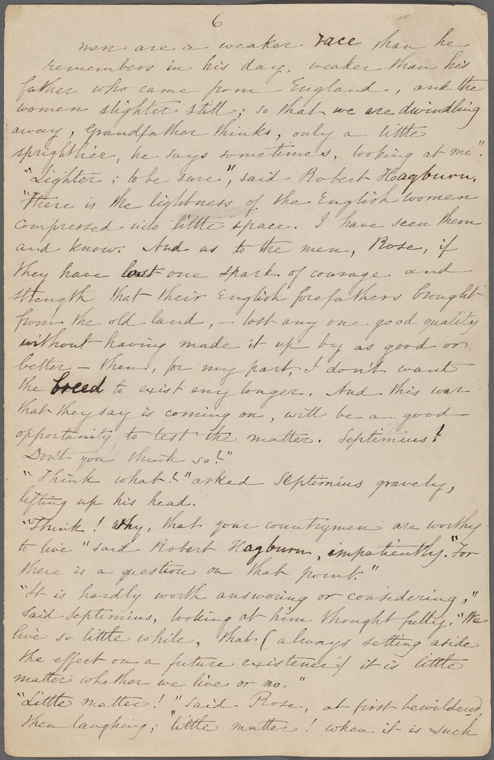 6
men are a weaker race than he
remembers in his day, weaker than his
father who came from England, and the
women slighter still; so that we are dwindling
away, Grandfather thinks, only a little
sprightlier, he says sometimes, looking at me".
"Lighter; to be sure", said Robert Hagburn,
"there is the lightness of the English women
compressed into little space. I have seen them
and know. And as to the men, Rose, if
they have lost one spark of courage and
strength that their English forefathers brought
from the old land, - lost any one good quality
without having made it up by as good or
better - then, for my part, I don't want
the breed to exist any longer. And this war
that they say is coming on, will be a good
opportunity to test the matter. Septimius!
Don't you think so?"
"Think what?" asked Septimius gravely,
lifting up his head.
"Think! Why, that your countrymen are worthy
to live" said Robert Hagburn, impatiently. "For
there is a question on that point."
"It is hardly worth answering or considering,"
said Septimius, looking at him thoughtfully, "We
live so little while, that (always setting aside
the effect on a future existence) it is little
matter whether we live or no."
"Little matter!" said Rose, at first bewildered,
then laughing; "little matter! when it is such